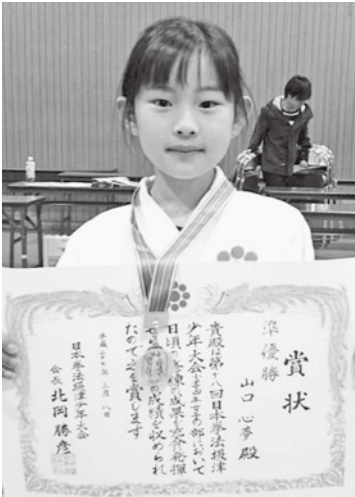 賞状
準優勝
山口 心夢 殿
貴殿は第十八回日本拳法摂津
少年大会
の部において
日頃の
練の成果を完全発揮
の成績を収められ
たのでこれを賞します
平成二十七年三月八日
日本拳法摂津少年大会
会長 北岡 勝彦